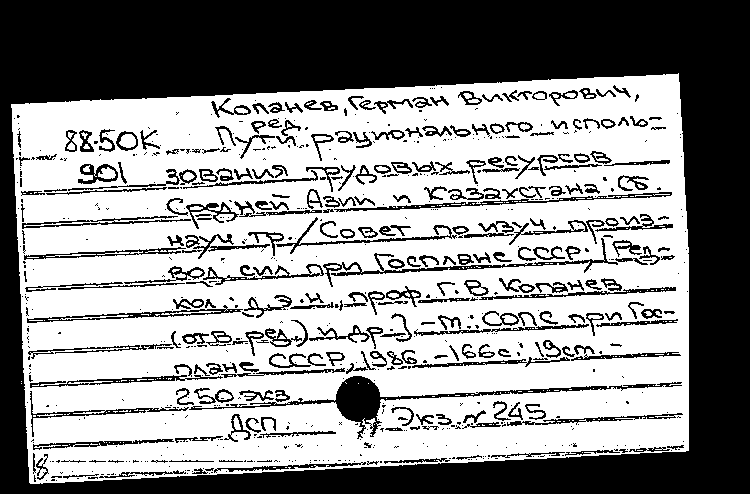 Копанев, Герман Викторович,
ред.
88-50К Пути рационального исполь-
901 зования трудовых ресурсов
Средней Азии и Казахстана: Сб.
науч. тр. / Совет по изуч. произ-
вод. сил при Госплане СССР; [Ред-
кол.: д.э.н., проф. Г.В. Копанев
(отв. ред.) и др.] - М.: СОПС при Гос-
плане СССР, 1986. - 166с.; 19см. -
250 экз.
Дсп. Экз. № 245
8